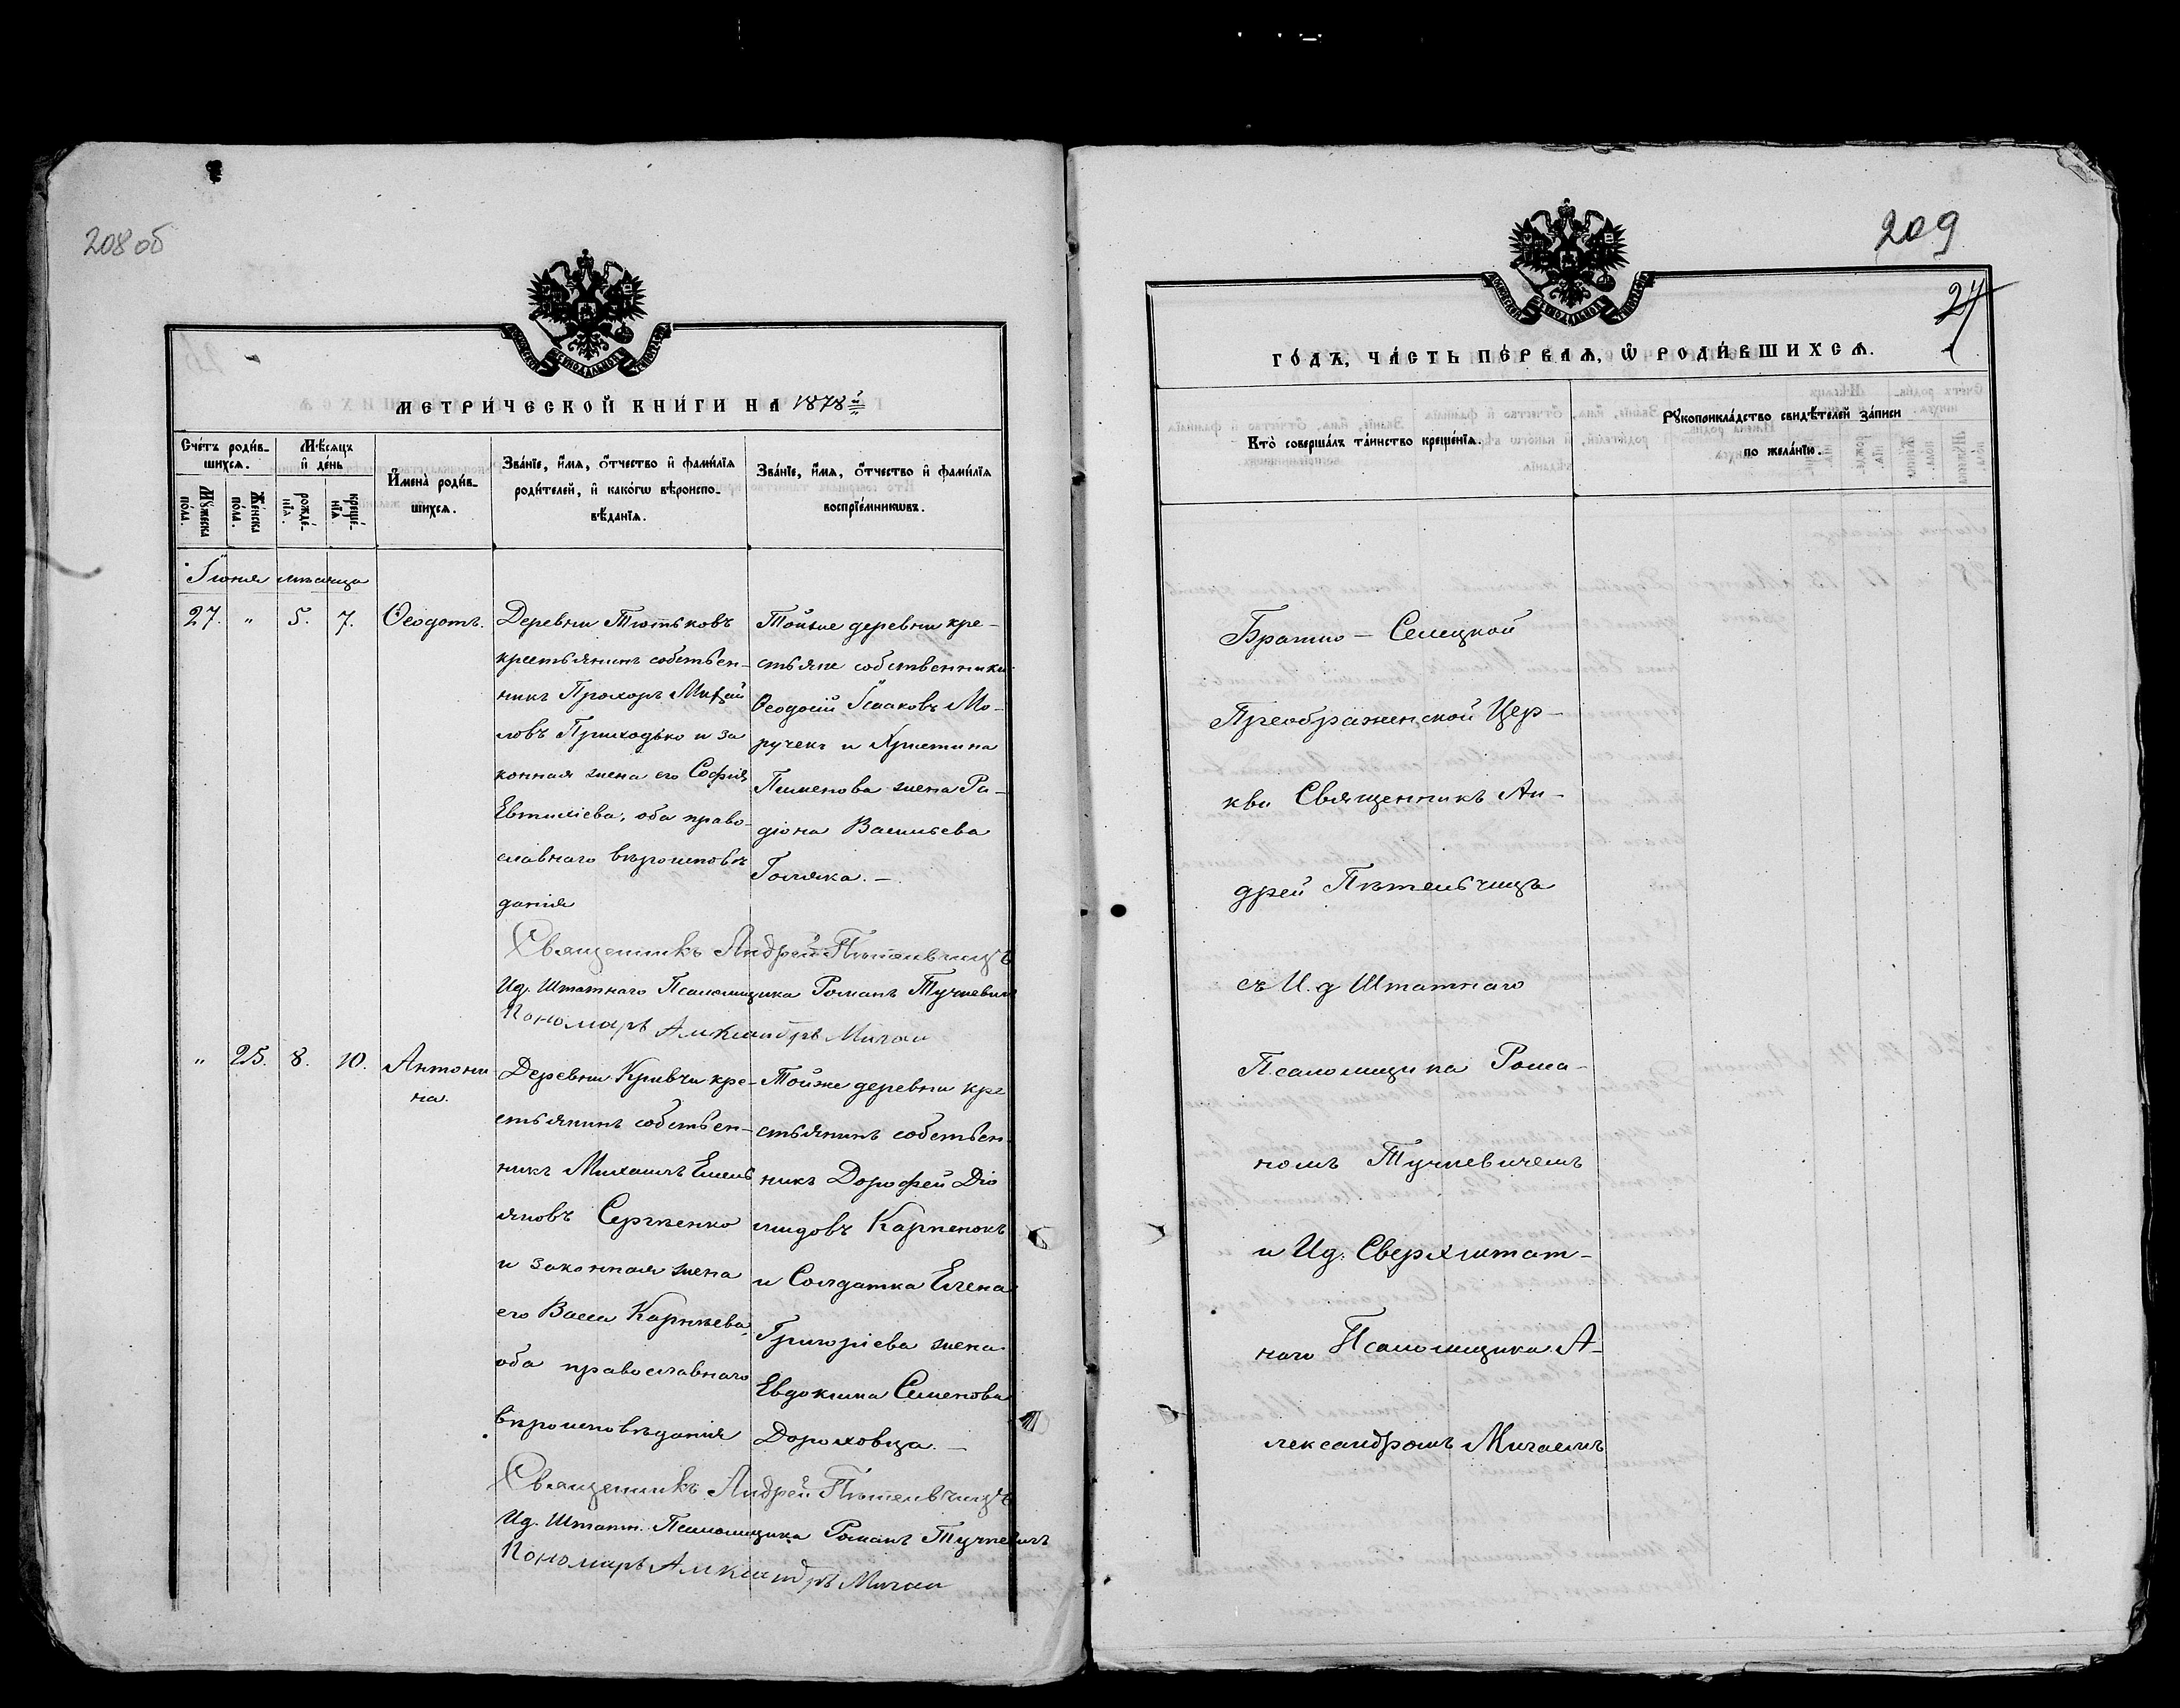 208 об
МЕТРИ́ЧЕСКОЙ КНИ́ГИ НА 1878й
Сче́тъ роди́в-
шихся.
Мѣ́сяцъ
и҆ де́нь
И҆мена̀ роди́в-
шихся.
Зва́нїе, и҆́мя, ѻ҆́тчество и҆ фами́лїя
роди́телей, и҆ како́гѡ вѣроиспо-
вѣ́данїя.
Зва́нїе, и҆́мя, ѻ҆́тчество и҆ фами́лїя
воспрїе́мникѡвъ.
Мꙋ́жеска
по́ла.
Же́нска
по́ла.
рожде́-
нїя.
креще́-
нїя
Іюня мѣсяца
27. " 5. 7. Ѳеодотъ.
Деревни Тютьковъ
крестьянинъ собствен-
никъ Прохоръ Михай
ловъ Приходько и за
конная жена его Софія
Евтихіева, оба право-
славнаго вѣроисповѣ
данія
Тойже деревни кре-
стьяне собственники
Ѳеодосій Исааковъ Мо-
ручекъ и Христина
Пименова жена Ра-
діона Васильева
Голяка. —
Священникъ Андрей Пѣтельчицъ
Ид. Штатнаго Псаломщика Романъ Тучкевичъ
Пономаръ Александръ Мигай
" 25. 8. 10. Антони
на.
Деревни Кривчи кре-
стьянинъ собствен-
никъ Михаилъ Емель
яновъ Сергѣенко
и законная жена
его Васса Карпѣева,
оба православнаго
вѣроисповѣданія
Тойже деревни кре
стьянинъ собствен
никъ Дорофей Діо
мидовъ Карпенокъ
и Солдатка Елена
Григоріева жена
Евдокима Семенова
Дороховца. —
Священникъ Андрей Пѣтельчицъ
Ид. Штатн. Псаломщика Романъ Тучкевичъ
Пономаръ Александръ Мигай
209
27
ГО́ДЪ, ЧА́СТЬ ПЕ́РВАЯ, Ѽ РОДИ́ВШИХСЯ.
Кто̀ соверша́лъ та́инство креще́нїя.
Рꙋкоприкла́дство свидѣ́телей за́писи
по жела́нїю.
Братио - Селецкой
Преображенской Цер-
кви Священникъ Ан-
дрей Пѣтельчицъ
съ И. д Штатнаго
Псаломщика Рома-
номъ Тучкевичемъ
и Ид. Сверхштат-
наго Псаломщика А-
лександромъ Мигаемъ